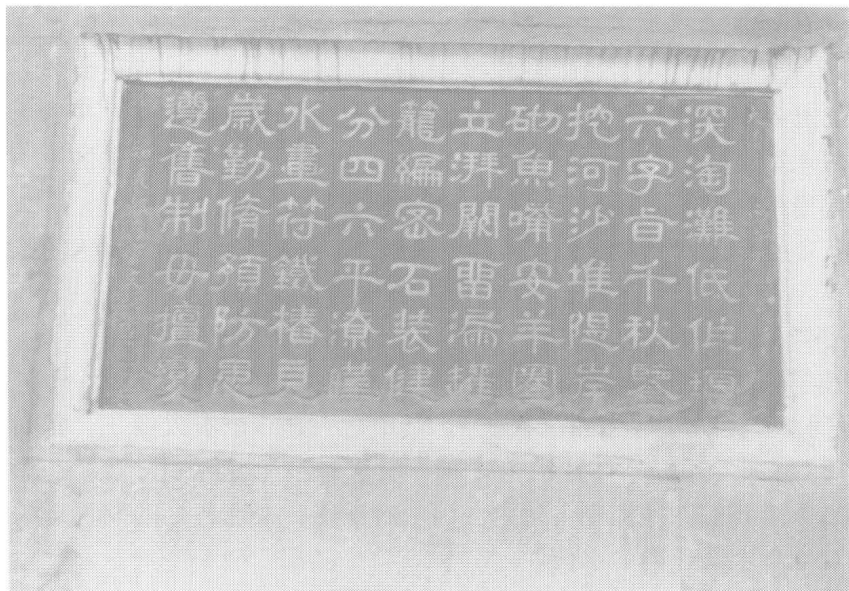 深淘灘低作堰
六字旨千秋鑒
挖河沙堆隄岸
砌魚嘴安羊圈
立湃闕畱漏罐
籠編密石裝健
分四六平潦
水畫符鐵椿見
歲勤脩預防患
遵舊制毋擅變